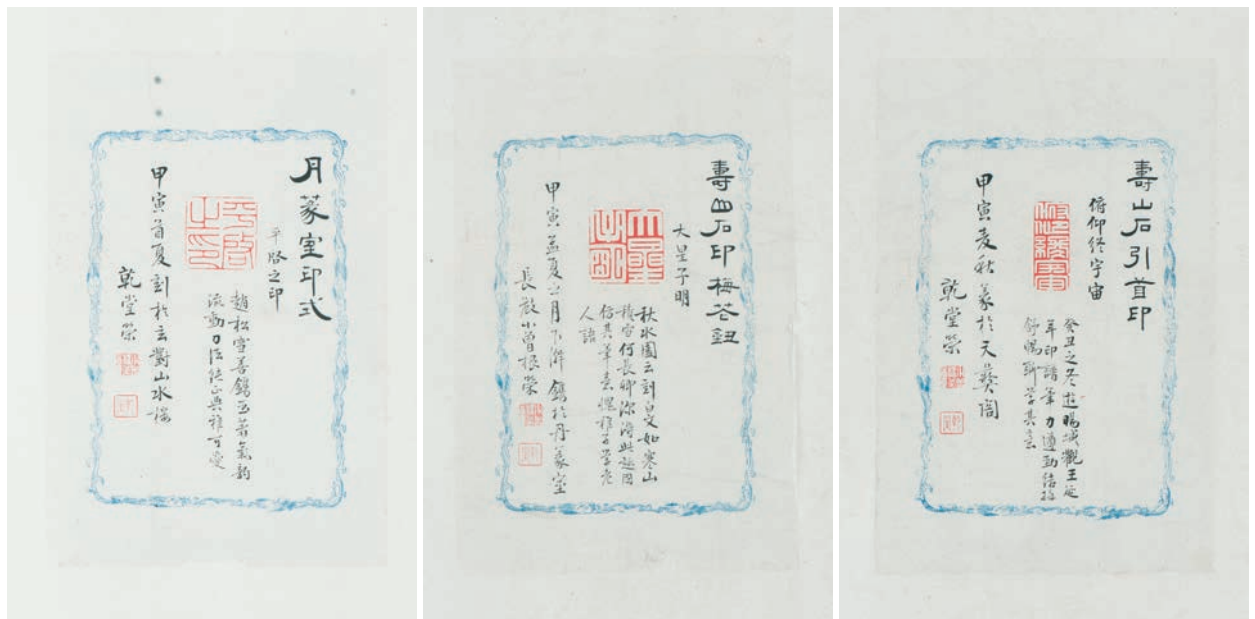 月篆室印式
平啓之印
趙松雪善鐫玉著氣韵
流動刀法 正典雅可愛
甲寅首夏刻於玄對山水樓
乾堂榮
壽山石印梅花鈕
大星子明
秋水園云刻白文如寒山
積雪何長卿深得此趣因
仿其筆意愧稚子學老
人語
甲寅孟夏 月下澣鐫於丹篆室
長 小曾根榮
壽山石引首印
俯仰終宇宙
癸丑之冬遊 城觀王延
年印譜筆力遒勁結搆
舒暢聊學其意
甲寅麦秋篆於天葵閣
乾堂榮